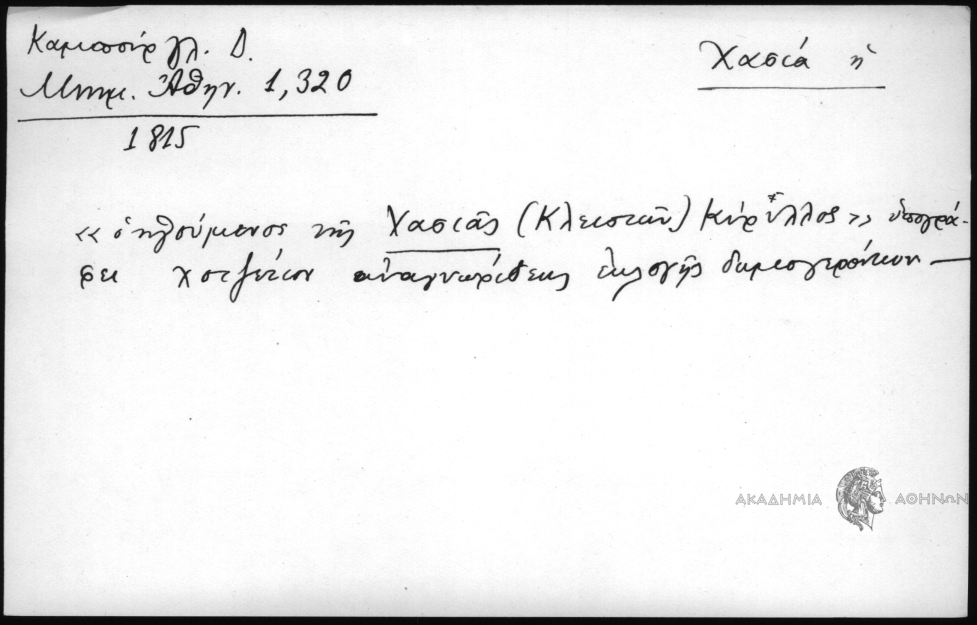 Καμπούρογλ. Δ.
Μνημ. Ἀθην. 1,320
1815
Χασιά ἡ
«ὁ ἡγούμενος τῆς Χασιᾶς (Κλειστῶν) Κύρυλλος» ὑπογρά-
φει χοτζέτιον ἀναγνωρίσεως ἐκλογῆς δημογερόντων —
ΑΚΑΔΗΜΙΑ ΑΘΗΝΩΝ